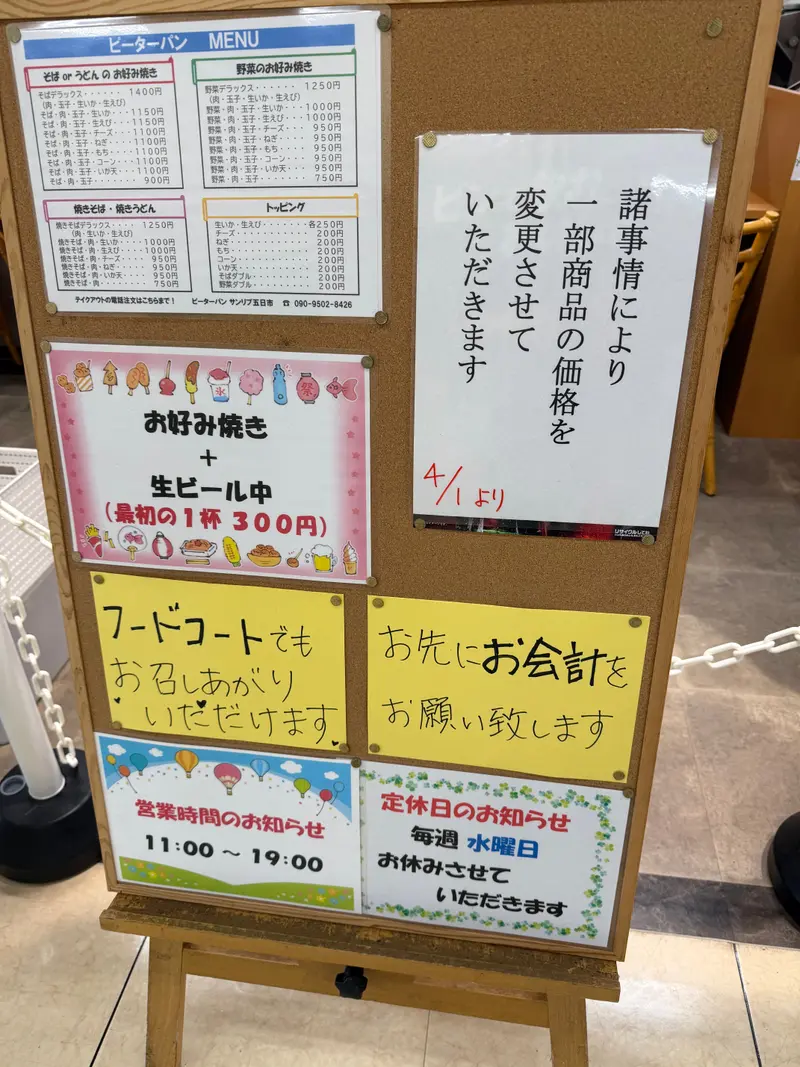 ピーターパン　MENU
そば or うどん の お好み焼き
そばデラックス・・・・・・1400円
(肉・玉子・生いか・生えび)
そば・肉・玉子・生いか・・・1150円
そば・肉・玉子・生えび・・・1150円
そば・肉・玉子・チーズ・・・1100円
そば・肉・玉子・ねぎ・・・・1100円
そば・肉・玉子・もち・・・・1100円
そば・肉・玉子・コーン・・・1100円
そば・肉・玉子・いか天・・・1100円
そば・肉・玉子・・・・・・・900円
野菜のお好み焼き
野菜デラックス・・・・・・1250円
(肉・玉子・生いか・生えび)
野菜・肉・玉子・生いか・・・1000円
野菜・肉・玉子・生えび・・・1000円
野菜・肉・玉子・チーズ・・・950円
野菜・肉・玉子・ねぎ・・・・950円
野菜・肉・玉子・もち・・・・950円
野菜・肉・玉子・コーン・・・950円
野菜・肉・玉子・いか天・・・950円
野菜・肉・玉子・・・・・・・750円
焼きそば・焼きうどん
焼きそばデラックス・・・・・1250円
(肉・生いか・生えび)
焼きそば・肉・生いか・・・・1000円
焼きそば・肉・生えび・・・・1000円
焼きそば・肉・チーズ・・・・950円
焼きそば・肉・ねぎ・・・・・950円
焼きそば・肉・いか天・・・・950円
焼きそば・肉・・・・・・・・750円
トッピング
生いか・生えび・・・・・・・各250円
チーズ・・・・・・・・・・・200円
ねぎ・・・・・・・・・・・・200円
もち・・・・・・・・・・・・200円
コーン・・・・・・・・・・・200円
いか天・・・・・・・・・・・200円
そばダブル・・・・・・・・・200円
野菜ダブル・・・・・・・・・200円
テイクアウトの電話注文はこちらまで！　ピーターパン サンリブ五日市　☎ 090-9502-8426
諸事情により
一部商品の価格を
変更させて
いただきます
4/1より
リサイクルしてね
氷
祭
お好み焼き
+
生ビール中
(最初の1杯 300円)
フードコートでも
お召しあがり
いただけます
お先にお会計を
お願い致します
営業時間のお知らせ
11:00 ～ 19:00
定休日のお知らせ
毎週 水曜日
お休みさせて
いただきます